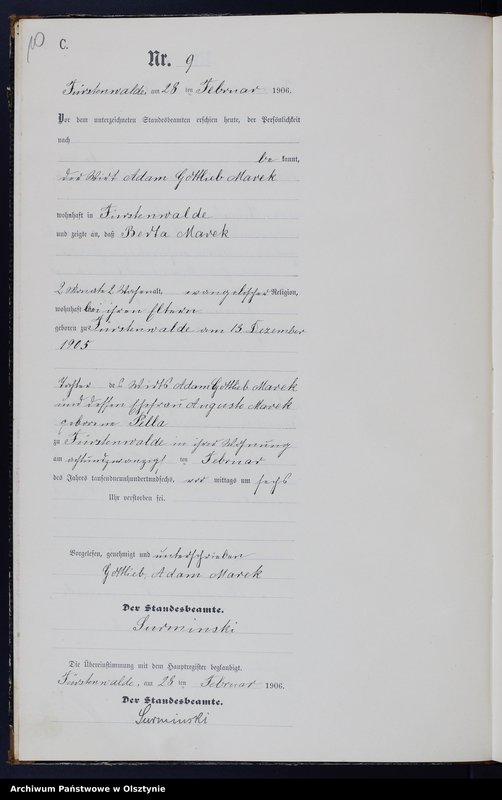 10
C.
Nr. 9
Fürstenwalde, am 28 ten Februar 1906.
Vor dem unterzeichneten Standesbeamten erschien heute, der Persönlichkeit
nach
be kannt,
der Wirt Adam Gottlieb Marek
wohnhaft in Fürstenwalde
und zeigte an, daß Berta Marek
2 Monate 2 Wochen alt, evangelischer Religion,
wohnhaft bei ihren Eltern
geboren zu Fürstenwalde am 13 Dezember
1905
Tochter des Wirts Adam Gottlieb Marek
und dessen Ehefrau Auguste Marek
geborene
zu Fürstenwalde in ihrer Wohnung
am achtundzwanzigsten Februar
des Jahres tausendneunhundertundsechs, vor mittags um sechs
Uhr verstorben sei.
Vorgelesen, genehmigt und unterschrieben
Gottlieb, Adam Marek
Der Standesbeamte.
Surminski
Die Übereinstimmung mit dem Hauptregister beglaubigt.
Fürstenwalde, am 28 ten Februar 1906.
Der Standesbeamte.
Surminski
Archiwum Państwowe w Olsztynie